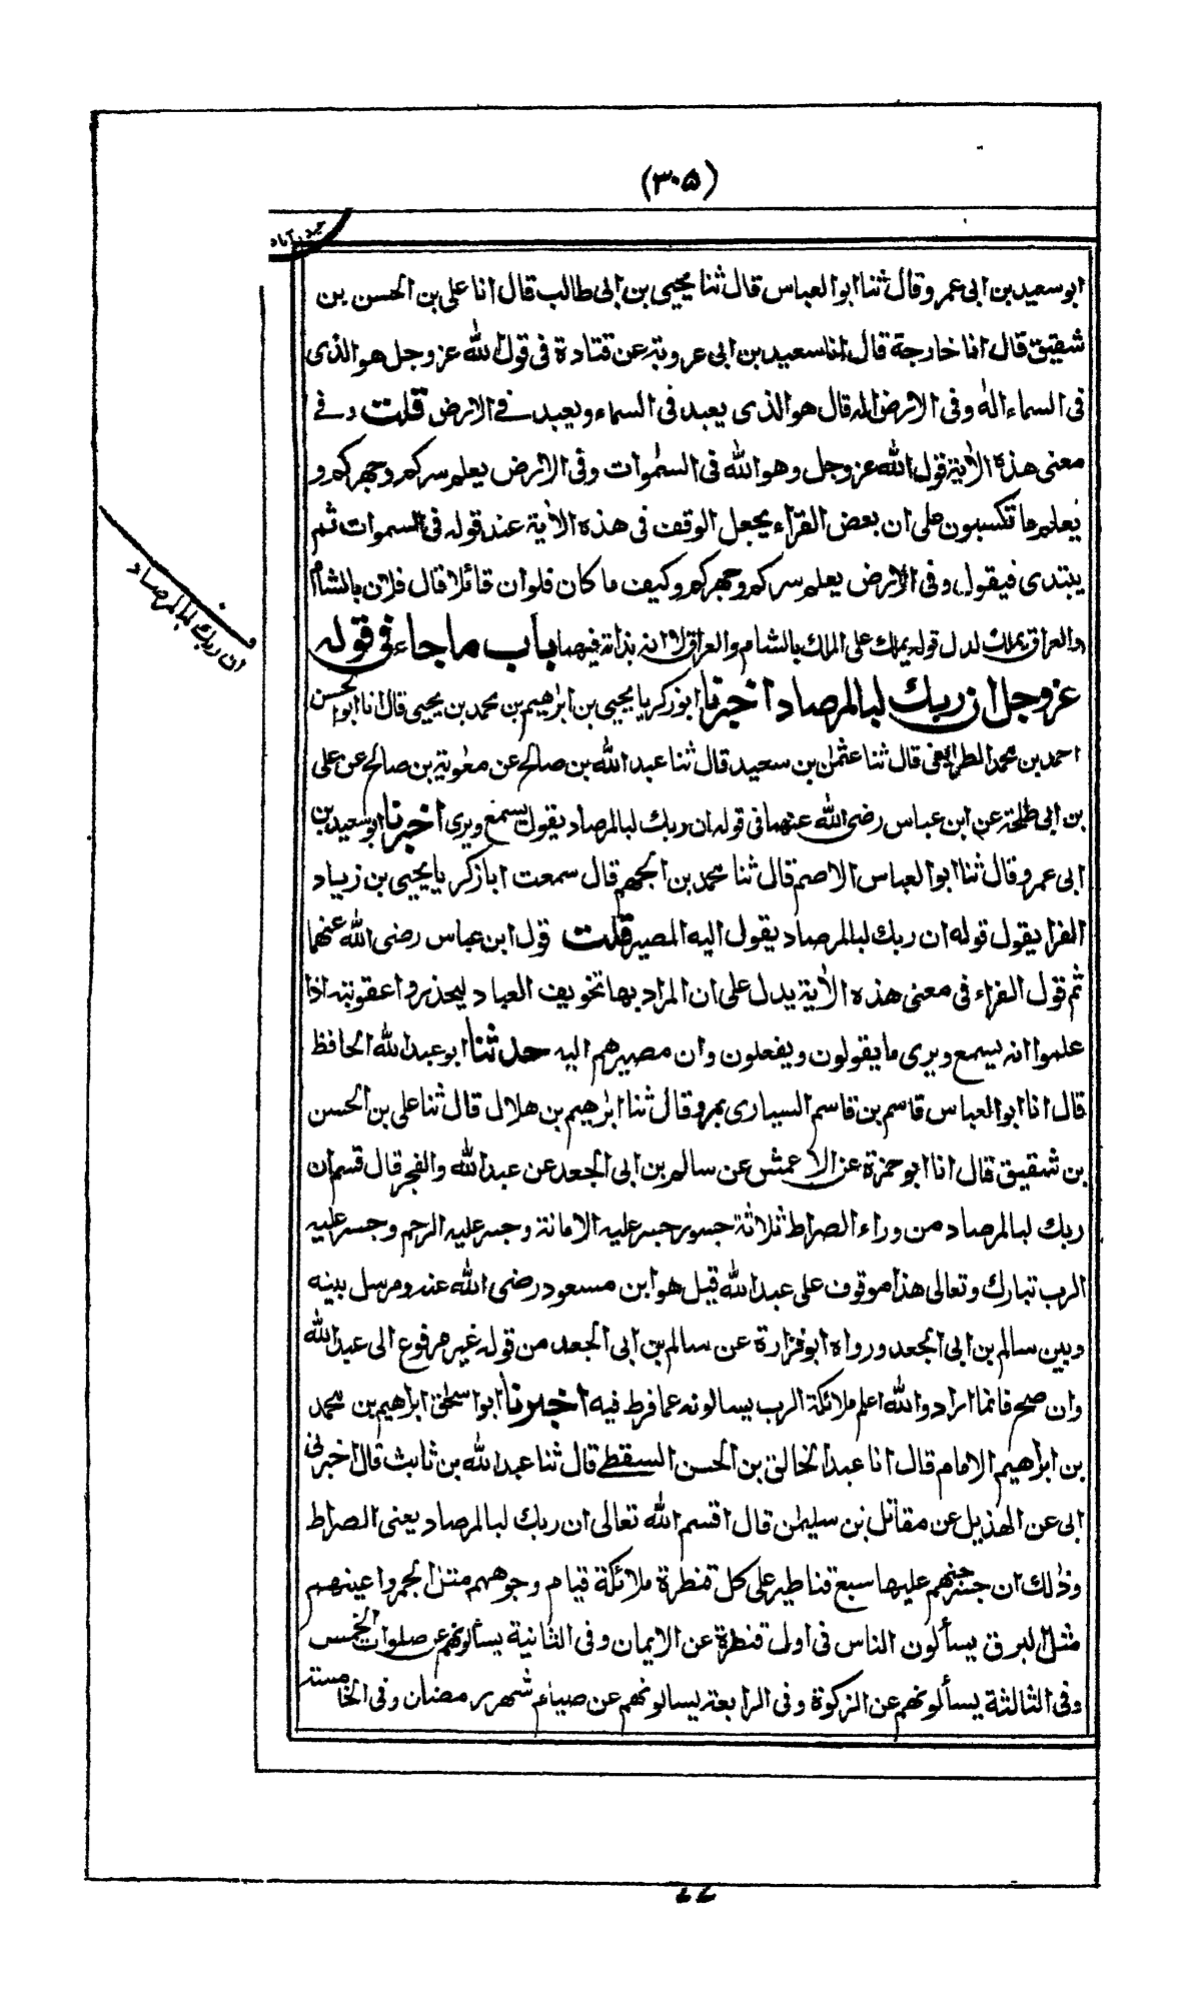 (۳۰۵)
ابو سعيد بن ابى عمرو قال ثنا ابو العباس قال ثنا يحيى بن ابى طالب قال انا على بن الحسن بن
شقيق قال انا خارجة قال انا سعيد بن ابى عروبة عن قتادة فى قول الله عز وجل هو الذى
فى السماء اله وفى الارض اله قال هو الذى يعبد فى السماء ويعبد فے الارض قلت وفے
معنى هذه الاٰية قول الله عز وجل وهو الله فى السمٰوات وفى الارض يعلم سركم وجهركم و
يعلم ما تكسبون على ان بعض القراء يجعل الوقف فى هذه الاٰية عند قوله فى السموات ثم
يبتدى فيقول وفى الارض يعلم سركم وجهركم وكيف ما كان فلو ان قائلا قال فلان بالشام
والعراق يملك لدل قوله يملك على الملك بالشام والعراق لا انه بذاته فيهما باب ما جاء فى قوله
عز وجل ان ربك لبالمرصاد اخبرنا ابو زكريا يحيى بن ابرٰهيم بن محمد بن يحيى قال انا ابو الحسن
احمد بن محمد الطرائفى قال ثنا عثمٰن بن سعيد قال ثنا عبد الله بن صالح عن معٰوية بن صالح عن على
بن ابى طلحة عن ابن عباس رضى الله عنهما فى قوله ان ربك لبالمرصاد يقول يسمع ويرى اخبرنا ابو سعيد بن
ابى عمرو قال ثنا ابو العباس الاصم قال ثنا محمد بن الجهم قال سمعت ابا زكريا يحيى بن زياد
الفرا يقول قوله ان ربك لبالمرصاد يقول اليه المصير قلت قول ابن عباس رضى الله عنهما
ثم قول الفراء فى معنى هذه الاٰية يدل على ان المراد بها تخويف العباد ليحذروا عقوبته اذا
علموا انه يسمع ويرى ما يقولون ويفعلون وان مصيرهم اليه حدثنا ابو عبد الله الحافظ
قال انا ابو العباس قاسم بن قاسم السيارى بمرو قال ثنا ابرٰهيم بن هلال قال ثنا على بن الحسن
بن شقيق قال انا ابو حمزة عن الاعمش عن سالم بن ابى الجعد عن عبد الله والفجر قال قسم ان
ربك لبالمرصاد من وراء الصراط ثلاثة جسور جسر عليه الامانة وجسر عليه الرحم وجسر عليه
الرب تبارك وتعالى هذا موقوف على عبد الله قيل هو ابن مسعود رضى الله عنه ومرسل بينه
وبين سالم بن ابى الجعد ورواه ابو فزارة عن سالم بن ابى الجعد من قوله غير مرفوع الى عبد الله
وان صح فانما اراد والله اعلم ملائكة الرب يسالونه عما فرط فيه اخبرنا ابو اسحٰق ابراهيم بن محمد
بن ابرٰهيم الامام قال انا عبد الخالق بن الحسن السقطے قال ثنا عبد الله بن ثابت قال اخبرنى
ابى عن الهذيل عن مقاتل بن سليمٰن قال اقسم الله تعالى ان ربك لبالمرصاد يعنى الصراط
وذٰلك ان جسر جهنم عليها سبع قناطير على كل قنطرة ملائكة قيام وجوههم مثل الجمر واعينهم
مثل البرق يسألون الناس فى اول قنطرة عن الايمان وفى الثانية يسألونهم عن صلوات الخمس
وفى الثالثة يسألونهم عن الزكوة وفى الرابعة يسالونهم عن صيام شهر رمضان وفى الخامسة
ان ربك لبالمرصاد